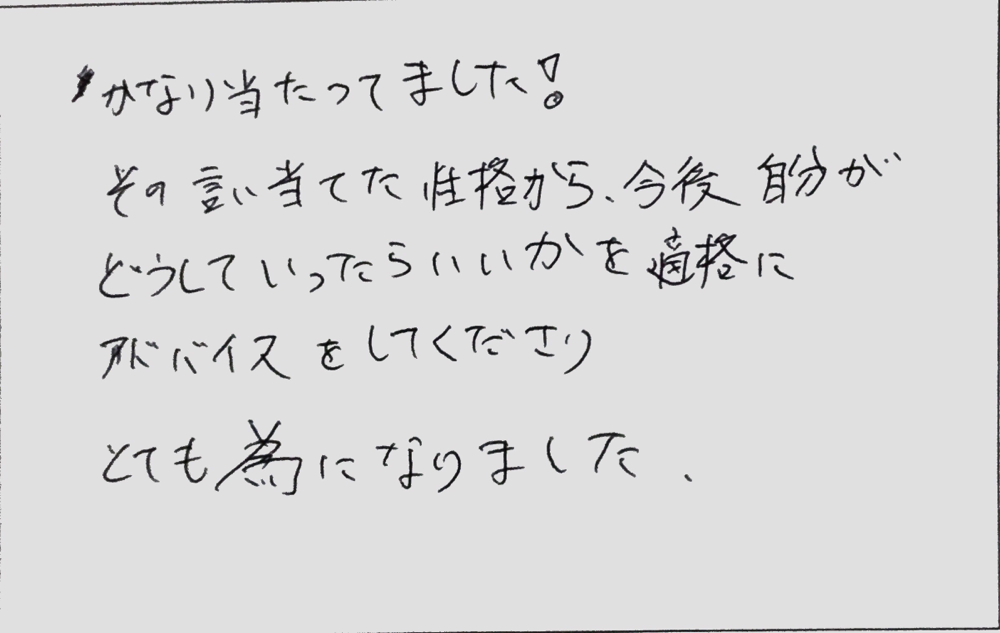 かなり当たってました!
その言い当てた性格から、今後自分が
どうしていったらいいかを適格に
アドバイスをしてくださり
とても為になりました、